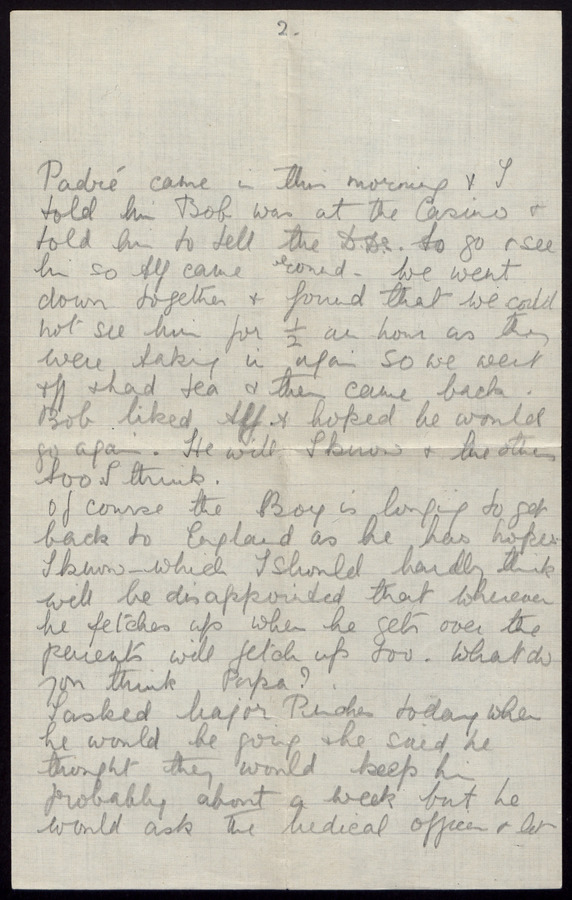 2.
Padré came in this morning & I
told him Bob was at the Casino &
told him to tell the to go & see
him so Alf came round - we went
down together & found that we could
not see him for ½ an hour as they
were taking in again so we went
off & had tea & then came back.
Bob liked Alf & hoped he would
go again. He will I know & the others
too I think.
Of course the Boy is longing to get
back to England as he has hopes
I know - which I should hardly think
will be disappointed that wherever
he fetches up when he gets over the
parents will fetch up too. What do
you think Papa?
I asked Major today when
he would be going & he said he
thought they would keep him
probably about a week but he
would ask the Medical Officer & let